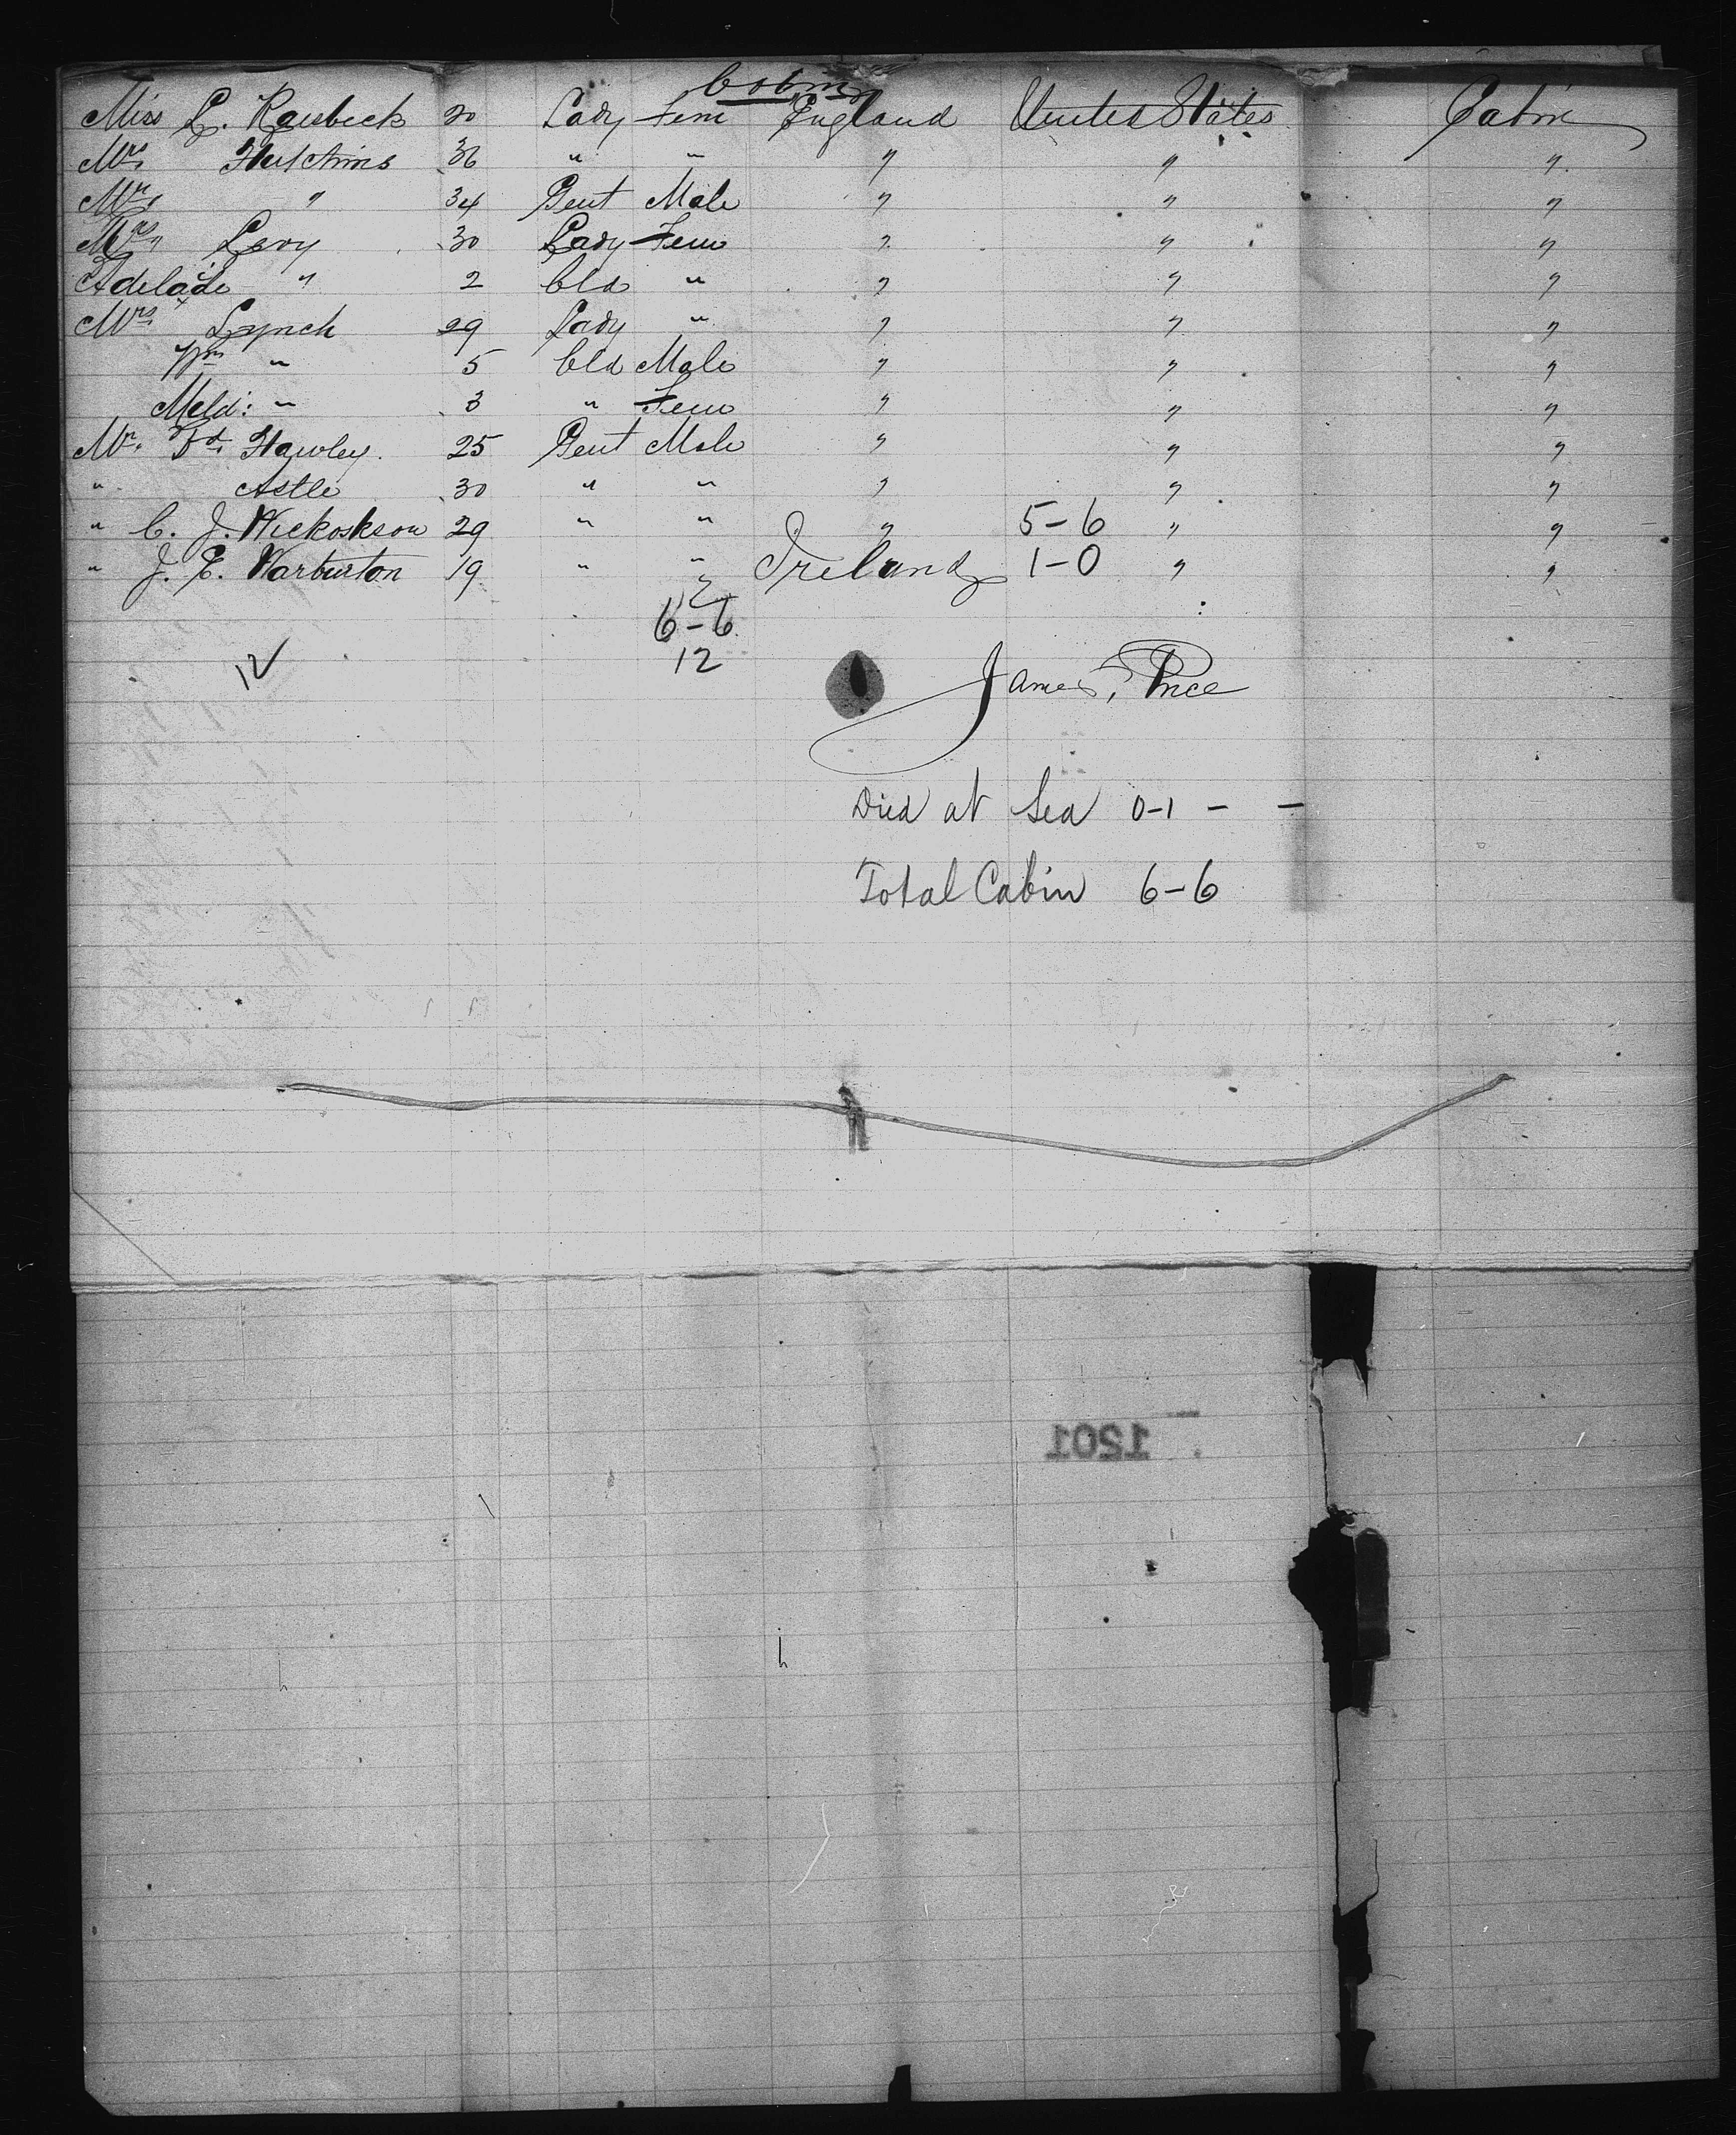 Cabin
Miss L. Raisbeck 20 Lady Fem England United States Cabin
Mrs Hutchins 36 " " " " "
Mr. " 34 Gent Male " " "
Mrs Levy 30 Lady Fem " " "
Adelaide " 2 Cld " " " "
Mrs Lynch 29 Lady " " " "
Wm " 5 Cld Male " " "
Meld: " 3 " Fem " " "
Mr. Fd. Hawley. 25 Gent Male " " "
" Astle 30 " " " " "
" C. J. Wickoskson 29 " " " 5-6 " "
" J. E. Warburton 19 " " Ireland 1-0 " "
6-6
12 12
James Price
Died at Sea 0-1 - -
Total Cabin 6-6
1201